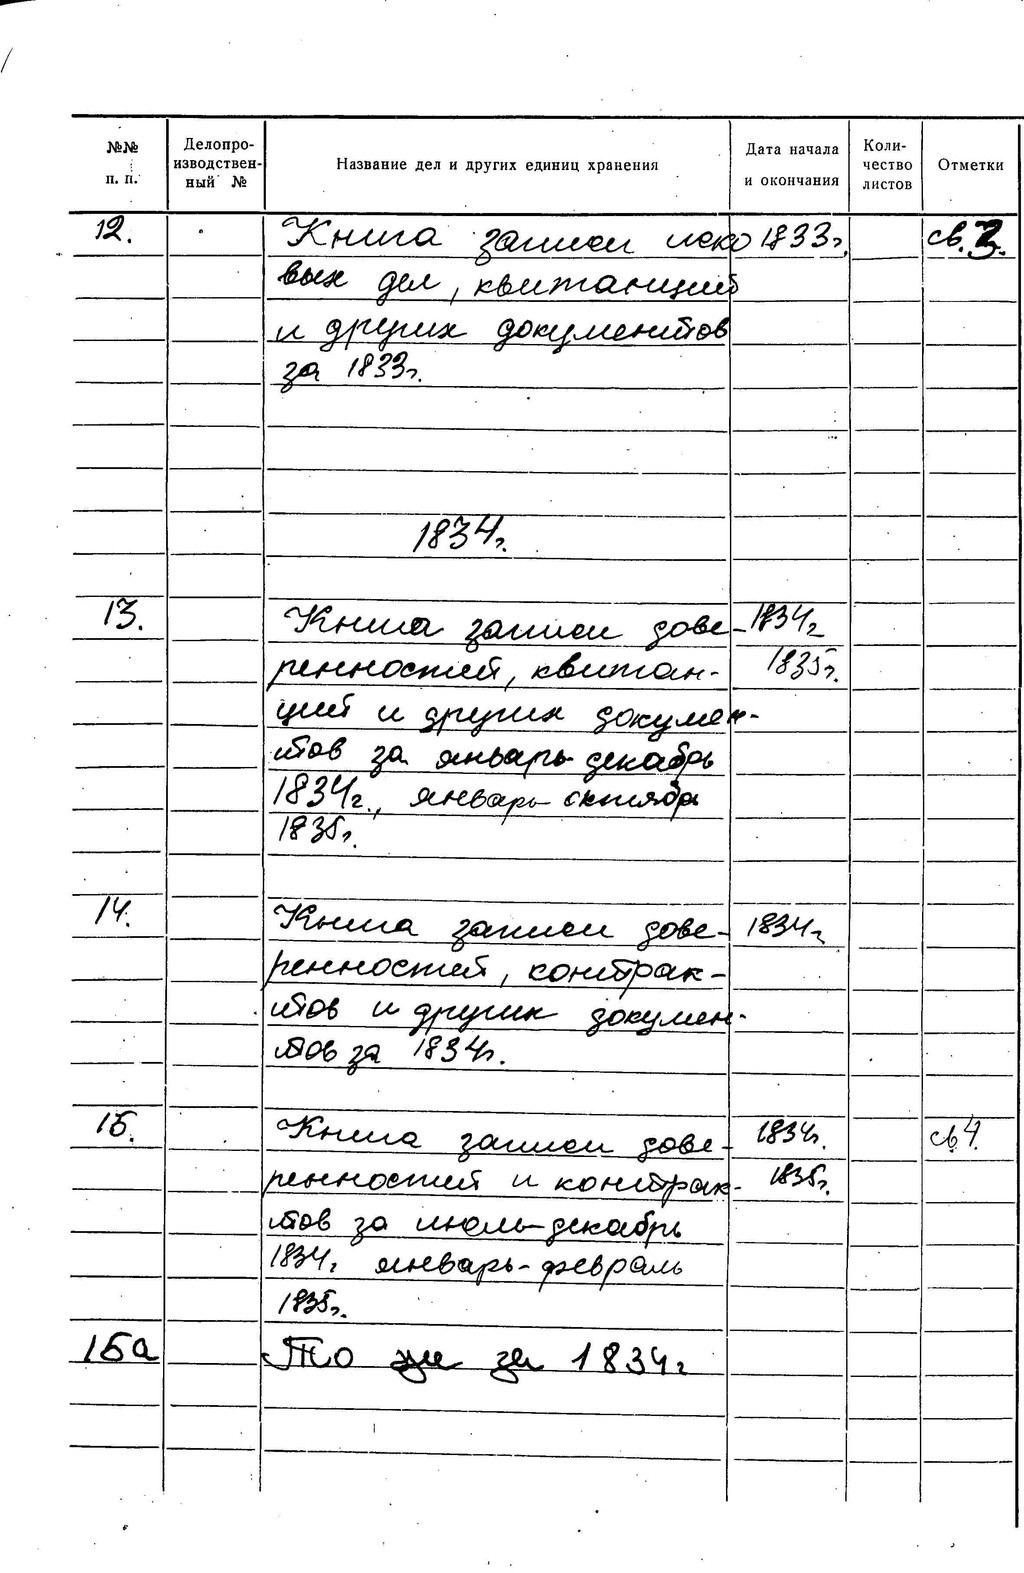 №№ п. п. Делопро-изводствен-ный № Название дел и других единиц хранения Дата начала и окончания Коли-чество листов Отметки
12. Книга записи иско 1833г. св. 3.
вых дел, квитанций
и других документов
за 1833г.
1834г.
13. Книга записи дове- 1834г
ренностей, квитан- 1835г.
ций и других докумен-
тов за январь-декабрь
1834г., январь-октябрь
1835г.
14. Книга записи дове- 1834г
ренностей, контрак-
тов и других докумен-
тов за 1834г.
15. Книга записи дове- 1834г. св 4.
ренностей и контрак- 1835г.
тов за июль-декабрь
1834г. январь-февраль
1835г.
15а То же за 1834г